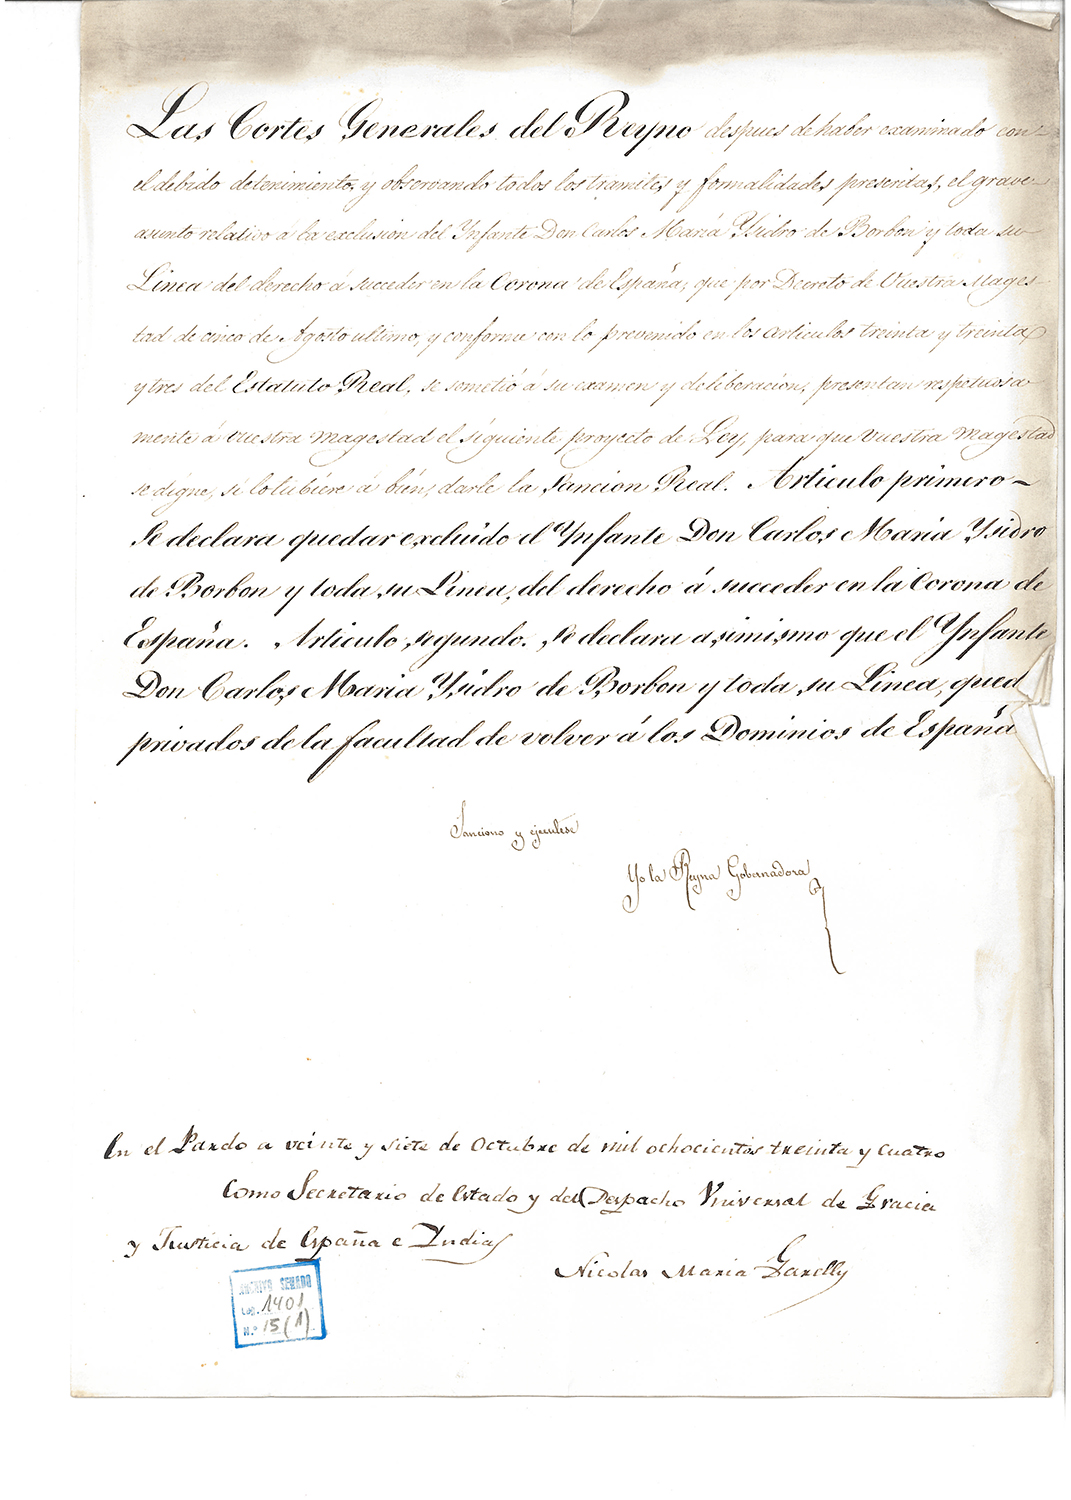 Las Cortes Generales del Reyno despues de haber examinado con
el debido detenimiento, y observando todos los tramites y formalidades prescritas, el grave
asunto relativo á la exclusion del Ynfante Don Carlos María Ysidro de Borbon y toda su
Linea del derecho á succeder en la Corona de España, que por Decreto de Vuestra Mages-
tad de cinco de Agosto ultimo, y conforme con lo prevenido en los articulos treinta y treinta
y tres del Estatuto Real, se sometió á su examen y deliberacion, presentan respetuosa
mente á Vuestra Magestad el siguiente proyecto de Ley, para que Vuestra Magestad
se digne, si lo tubiere á bien, darle la Sancion Real. Articulo primero
Se declara quedar excluido el Ynfante Don Carlos Maria Ysidro
de Borbon y toda su Linea, del derecho á succeder en la Corona de
España. Articulo segundo. Se declara asimismo que el Ynfante
Don Carlos Maria Ysidro de Borbon y toda su Linea, qued
privados de la facultad de volver á los Dominios de España
Sanciono y ejecutese
Yo la Reyna Gobernadora
En el Pardo a veinte y siete de Octubre de mil ochocientos treinta y cuatro
Como Secretario de Estado y del Despacho Universal de Gracia
y Justicia de España e Yndias
Nicolas Maria Garelly
ARCHIVO SENADO
Leg. 1401
N.º 15 (1)